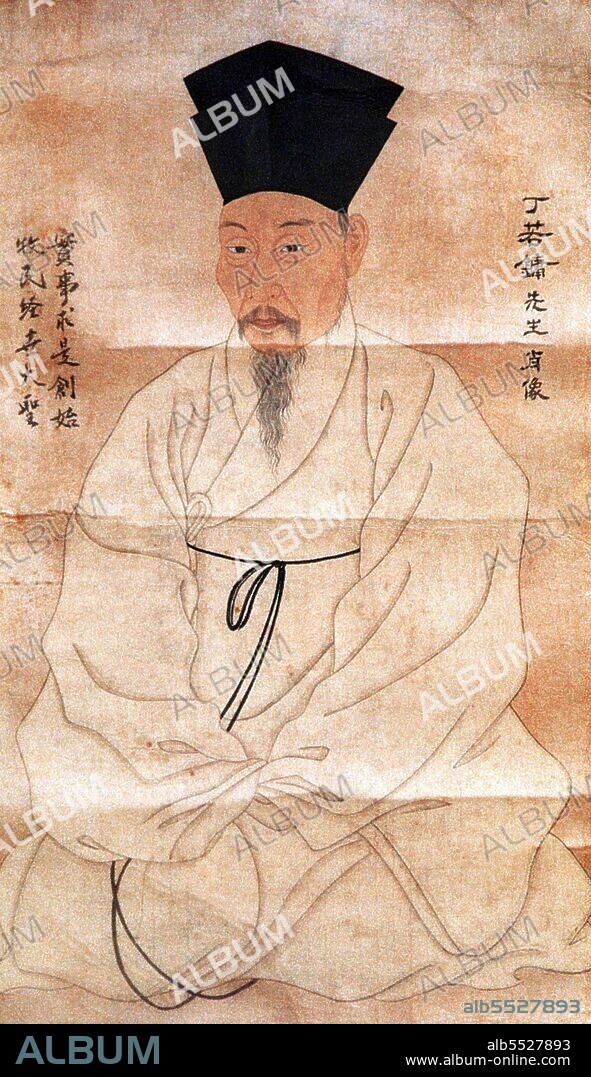 丁若鏞先生肖像
實事求是創始
牧民経世大聖
ALBUM
alb5527893
ALBUM
alb5527893
www.album-online.com